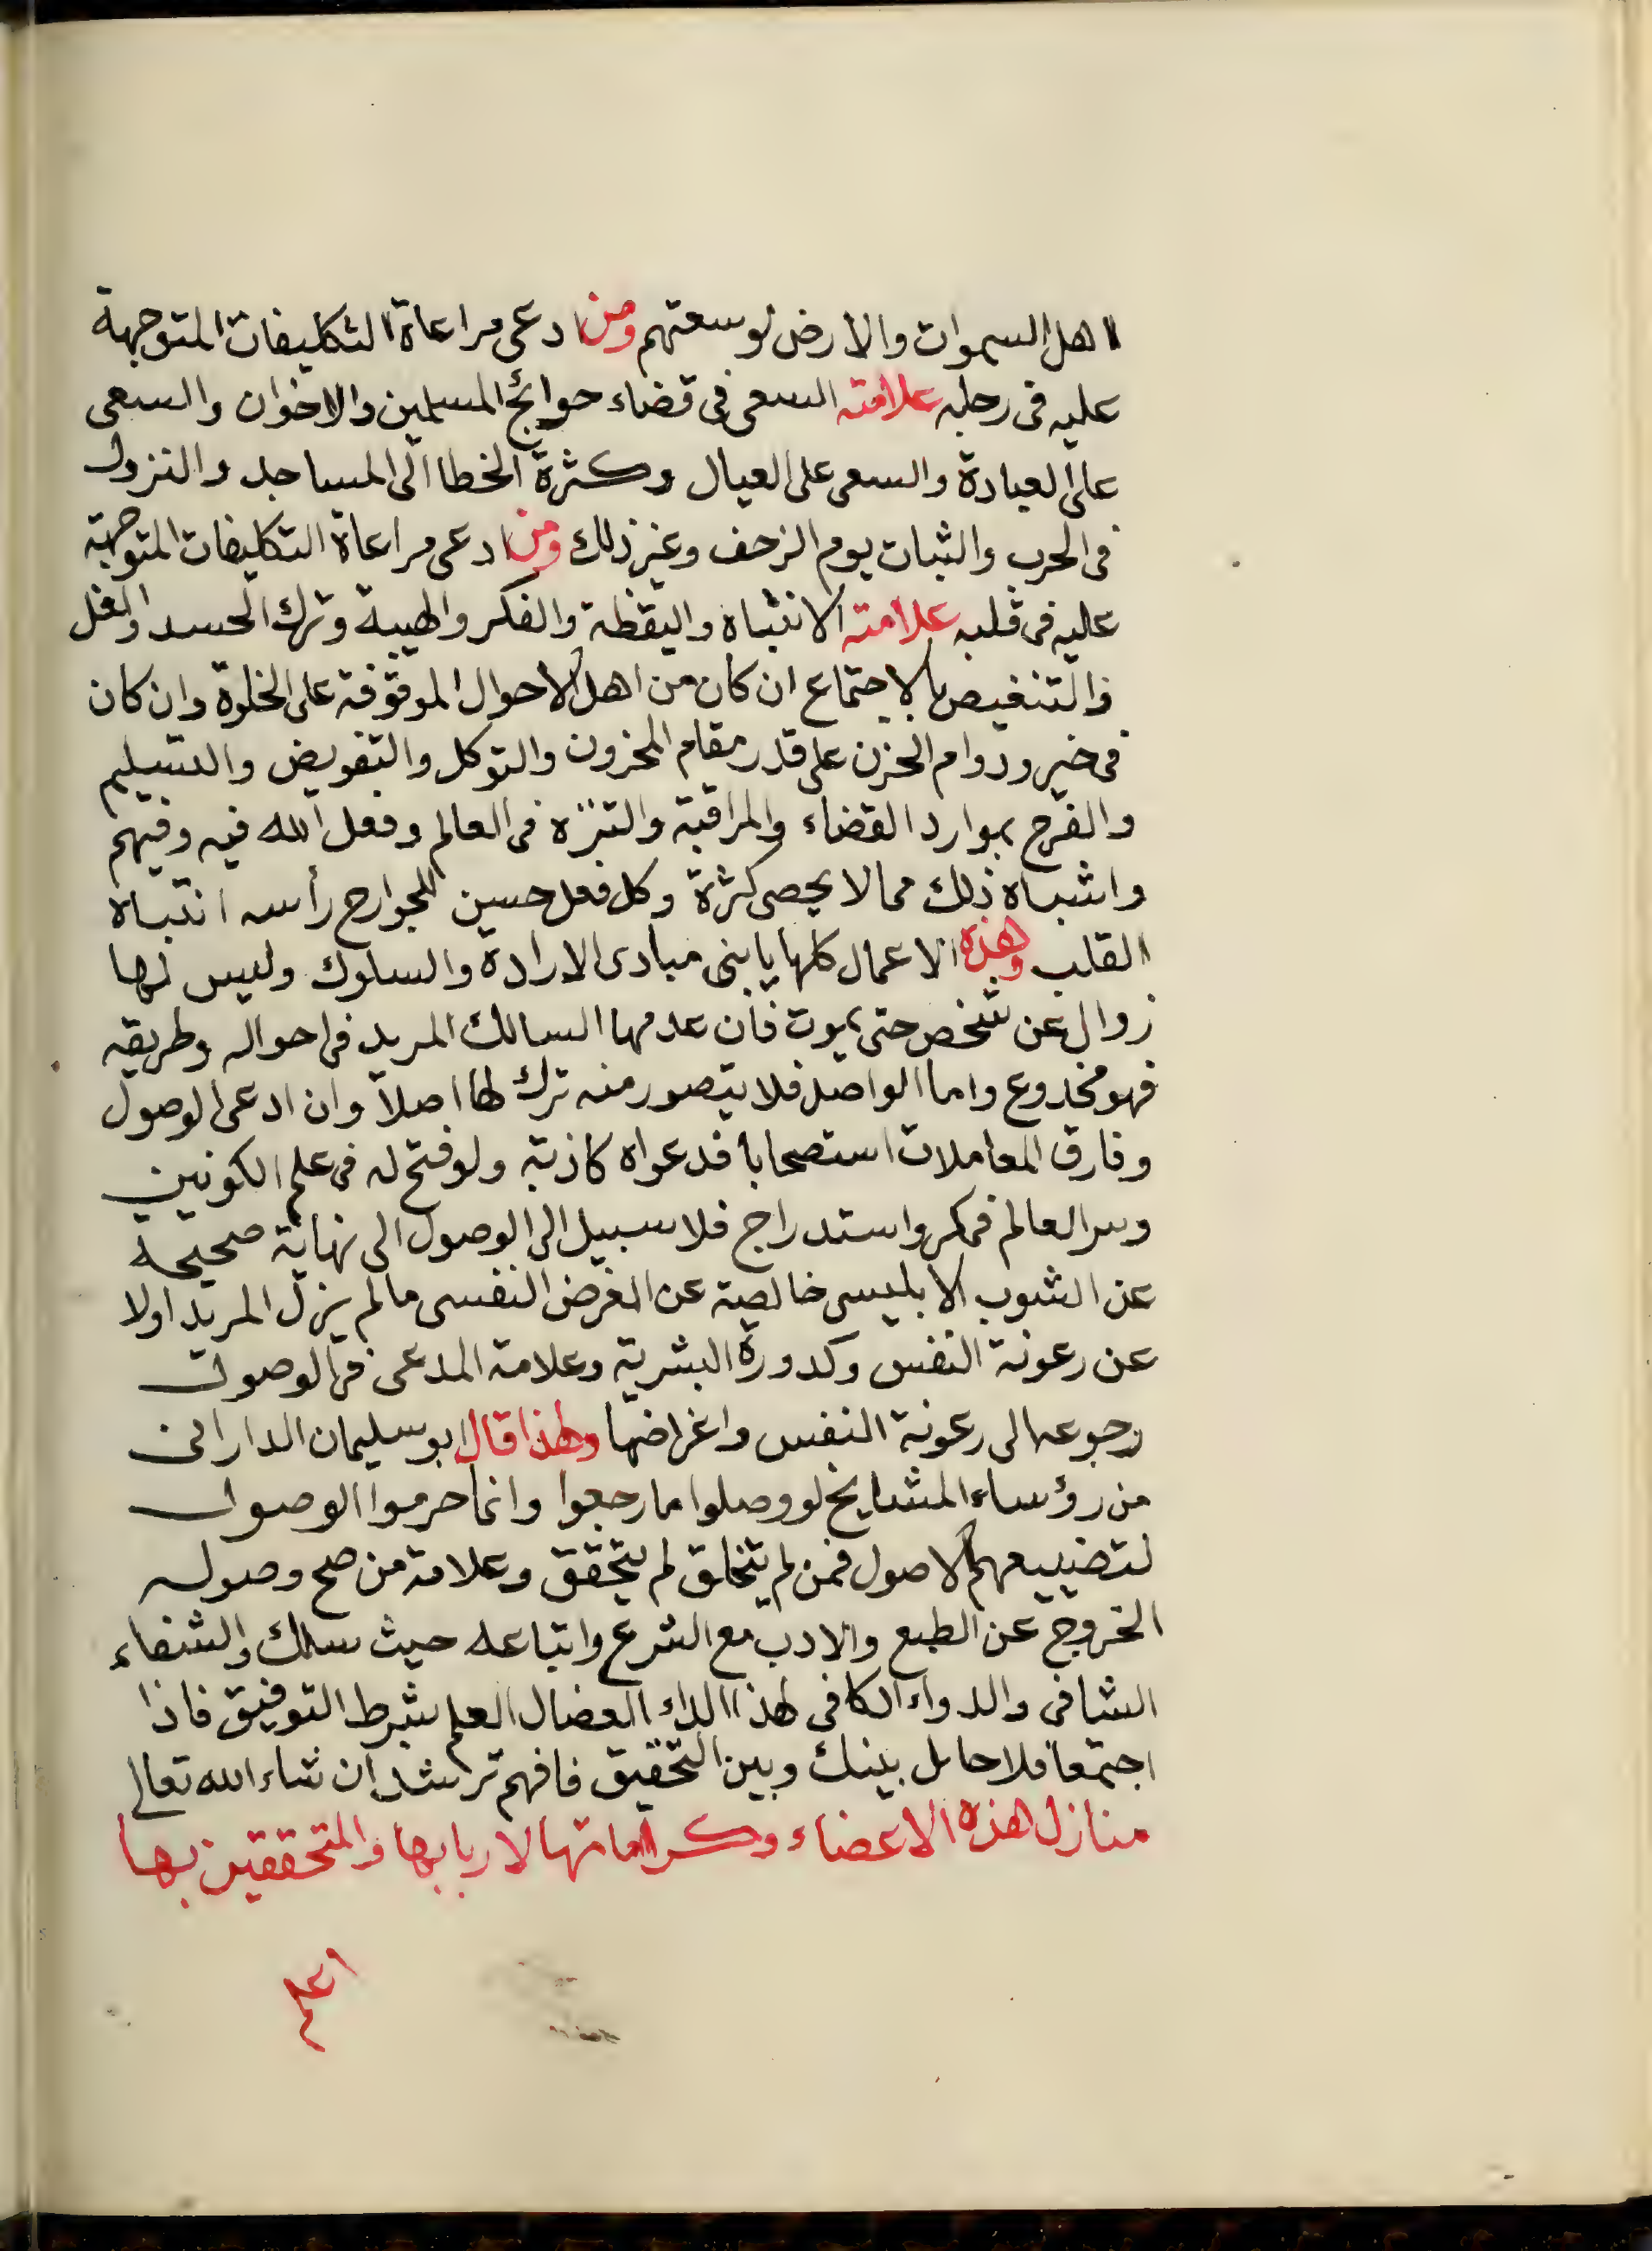 اهل السموات والارض لوسعتهم ومن ادعى مراعاة التكليفات المتوجهة
عليه فى رجله علامته السعى فى قضاء حوائج المسلمين والاخوان والسعى
على العبادة والسعى على العيال وكثرة الخطا الى المساجد والنزول
فى الحرب والثبات يوم الزحف وغير ذلك ومن ادعى مراعاة التكليفات المتوجهة
عليه فى قلبه علامته الانتباه واليقظة والفكر والهيبة وترك الحسد والغل
والتنغيص بالاجتماع ان كان من اهل الاحوال الموقوفة على الخلوة وان كان
فى خير ودوام الحزن على قدر مقام المحزون والتوكل والتفويض والتسليم
والفرح بموارد القضاء والمراقبة والتنزه فى العالم وفعل الله فيه وفيهم
واشباه ذلك مما لا يحصى كثرة وكل فعل حسن للجوارح رأسه انتباه
القلب وهذه الاعمال كلها يا بنى مبادى الارادة والسلوك وليس لها
زوال عن شخص حتى يموت فان عدمها السالك المريد فى احواله وطريقه
فهو مخدوع واما الواصل فلا يتصور منه ترك لها اصلا وان ادعى الوصول
وفارق المعاملات استصحابا فدعواه كاذبة ولو فتح له فى علم الكونين
وسر العالم فمكر واستدراج فلا سبيل الى الوصول الى نهاية صحيحة
عن الشوب الابليسى خالصة عن الغرض النفسى ما لم يزل المريد اولا
عن رعونة النفس وكدورة البشرية وعلامة المدعى فى الوصول
رجوعه الى رعونة النفس واغراضها ولهذا قال ابو سليمان الدارانى
من رؤساء المشايخ لو وصلوا ما رجعوا وانما حرموا الوصول
لتضييعهم الاصول فمن لم يتخلق لم يتحقق وعلامة من صح وصوله
الخروج عن الطبع والادب مع الشرع واتباعه حيث سلك والشفاء
الشافى والدواء الكافى لهذا الداء العضال العلم بشرط التوفيق فاذا
اجتمعا فلا حايل بينك وبين التحقيق فافهم ترشد ان شاء الله تعالى
منازل هذه الاعضاء وكراماتها لاربابها والمتحققين بها
اعلم